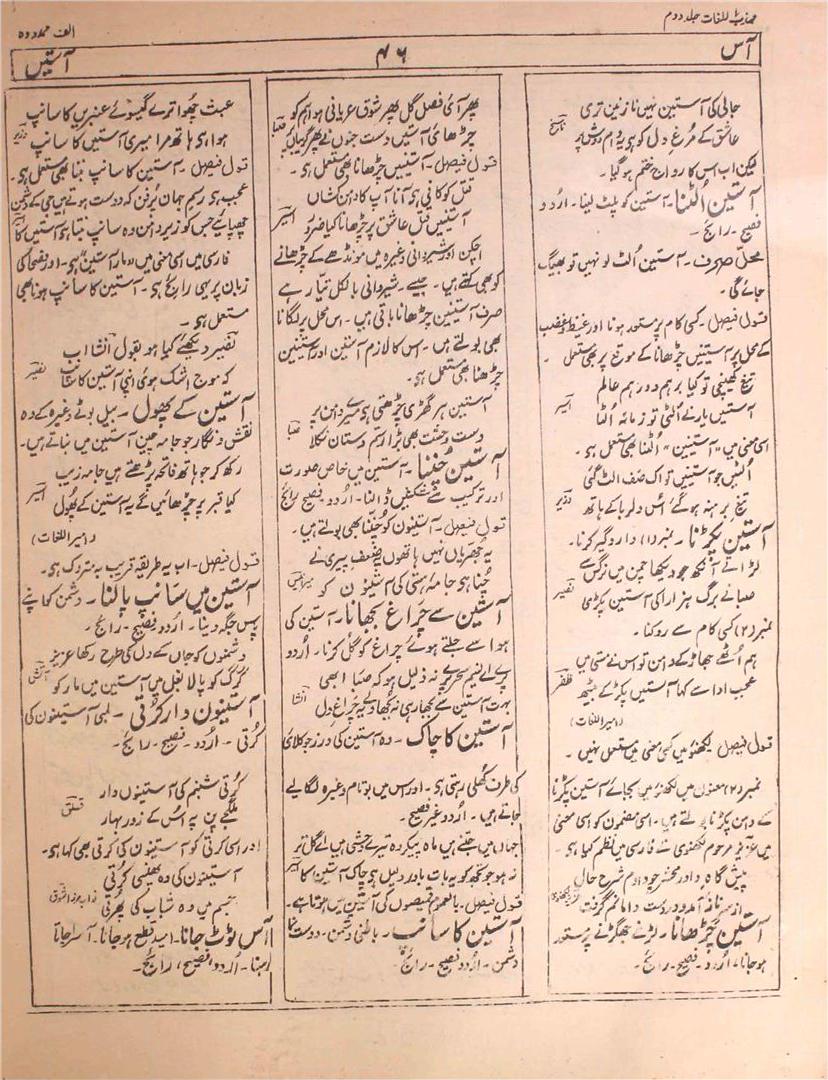 مہذب اللغات جلد دوم
الف ممدودہ
آس
۴۶
آستیں
جالی کی آستین نہیں نازنین تری
عاشق کے مرغِ دل کو ہر یہ دام دوش پر
لیکن اب اس کا رواج ختم ہو گیا۔
آستین اُلٹنا۔ آستین کو پلٹ لینا۔ اردو
فصیح۔ رائج۔
محلِّ صرف۔ آستین اُلٹ لو نہیں تو بھیگ
جائے گی۔
قول فیصل۔ کسی کام پر مستعد ہونا اور غیظ و غضب
کے محل پر آستینیں چڑھانا کے موقع پر بھی مستعمل۔
تیغ کھینچی تو کیا برہم دو رہم عالم
آستیں یار نے اُلٹی تو زمانہ اُلٹا امیر
اسی معنی میں "آستینیں" اُلٹنا بھی مستعمل ہے۔
اُلٹیں جو آستینیں تو اک صف اُلٹ گئی
تیغِ برہنہ ہو گئے اس دلربا کے ہاتھ وزیر
آستین پکڑنا۔ نمبر (۱) داروگیر کرنا۔
لڑانے آنکھ جو دیکھا چمن میں نرگس سے
صبا نے برگ ہزارا کی آستین پکڑی نصیر
نمبر (۲) کسی کام سے روکنا۔
ہم اُٹھے جھاڑ کے دامن تو اس نے مستی میں
عجب ادا سے کہا آستیں پکڑ کے بیٹھ ظفر
(امیر اللغات)
قول فیصل لکھنؤ میں کسی معنی میں مستعمل نہیں۔
نمبر (۲) معنوں میں لکھنؤ میں بجائے آستین پکڑنا
کے دامن پکڑنا بولتے ہیں۔ اسی مضمون کو اسی معنی
میں عزیز مرحوم لکھنوی نے فارسی میں نظم کیا ہے۔
پیش گاہِ داورِ محشر چو دادم شرح حال
آستین چڑھانا۔ لڑنے جھگڑنے پر مستعد
ہو جانا، اردو۔ فصیح۔ رائج۔
پھر آئی فصل گل پھر شوق عریانی ہوا ہم کو
چڑھائی آستیں دست جنوں نے پھر گریباں پر صبا
قول فیصل۔ آستینیں چڑھانا بھی مستعمل ہے۔
قتل کو کافی ہے آنا آپ کا دامن کشاں
آستیں قتل عاشق پر چڑھانا کیا ضرور اسیر
اچکن اور شیروانی وغیرہ میں مونڈھے کے چڑھانے
کو بھی کہتے ہیں۔ جیسے۔ شیروانی بالکل تیار ہے
صرف آستینیں چڑھانا باقی ہیں۔ اس محل پر لگانا
بھی بولتے ہیں۔ اس کا لازم آستین اور آستینیں
چڑھنا بھی مستعمل ہے۔
آستین ہر گھڑی چڑھتی ہے میرے دامن پر
دست وحشت بھی بڑا رستم دستان نکلا صبا
آستین چُننا۔ آستین میں خاص صورت
اور ترکیب سے شکنیں ڈالنا۔ اردو۔ فصیح رائج
قول فیصل۔ آستینوں کو چننا بھی بولتے ہیں۔
یہ جھریاں نہیں ہاتھوں پہ ضعف پیری نے
چنا ہے جامۂ ہستی کی آستینوں کو میر انیس
آستین سے چراغ بجھانا۔ آستین کی
ہوا سے جلتے ہوئے چراغ کو گل کرنا۔ اردو
پر اے نسیم سحر پہ نہ ذلیل ہو کہ صبا ابھی
بہت آستین سے بجھا رہی نہ بجھا ولے یہ چراغ دل انشا
آستین کا چاک۔ وہ آستین کی درز جو کلائی
کی طرف کھلی رہتی ہے۔ اور اس میں بوتام وغیرہ لگائے
جاتے ہیں۔ اردو غیر فصیح۔
جہاں میں جتنے ہیں ماہ پیکر وہ تیرے حبشی ہیں اے گل تر
نہ ہو جو تجھ کو یہ بات باور دلیل ہے چاک آستین کا امیر
قول فیصل۔ بالعموم قمیصوں کی آستین میں ہوتا ہے۔
آستین کا سانپ۔ باطنی دشمن۔ دوست نما
دشمن۔ اردو۔ فصیح۔ رائج۔
عبث چھوا ترے گیسوئے عنبریں کا سانپ
ہوا ہے ہاتھ مرا میری آستیں کا سانپ وزیر
قول فیصل۔ آستین کا سانپ بننا بھی مستعمل ہے۔
عجب ہے رسم جہان پُر فن کہ دوست ہوتے ہیں جی کے دشمن
چھپائیے جس کو زیر دامن وہ سانپ بنتا ہے آستیں کا امیر
فارسی میں اسی معنی میں "مار آستین" ہے۔ اور فصحا کی
زبان پر یہی رائج ہے۔ آستین کا سانپ ہونا بھی
مستعمل ہے۔
نصیر دیکھئے کیا ہو بقول انشا اب
کہ موج اشک ہوئی اپنی آستین کا سانپ نصیر
آستین کے پھول۔ بیل بوٹے وغیرہ کے وہ
نقش و نگار جو جامہ میں آستین میں بناتے ہیں۔
رکھ کر جو ہاتھ فاتحہ پڑھتے ہیں جامہ زیب
کیا قبر پر چڑھائیں گے یہ آستین کے پھول امیر
(امیر اللغات)
قول فیصل۔ اب یہ طریقہ قریب بہ متروک ہے۔
آستین میں سانپ پالنا۔ دشمن کو اپنے
پاس جگہ دینا۔ اردو فصیح۔ رائج۔
دشمنوں کو جاں کے دل کی طرح رکھا عزیز
گرگ کو پالا بغل میں آستین میں مار کو
آستینوں دار کُرتی۔ لمبی آستینوں کی
کُرتی۔ اردو۔ فصیح۔ رائج۔
کُرتی شبنم کی آستینوں دار
ملگجے پن پہ اس کے زور بہار قلق
اور اسی کرتی کو آستینوں کی کرتی بھی کہا ہے۔
آستینوں کی وہ پھنسی کرتی
جسم میں وہ شباب کی پھرتی نواب مرزا شوق
آس ٹوٹ جانا۔ امید قطع ہو جانا۔ آسرا جاتا
رہنا۔ اردو، فصیح، رائج۔